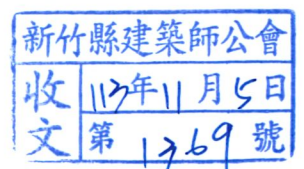 新竹縣建築師公會
收文
113年11月5日
第1369號